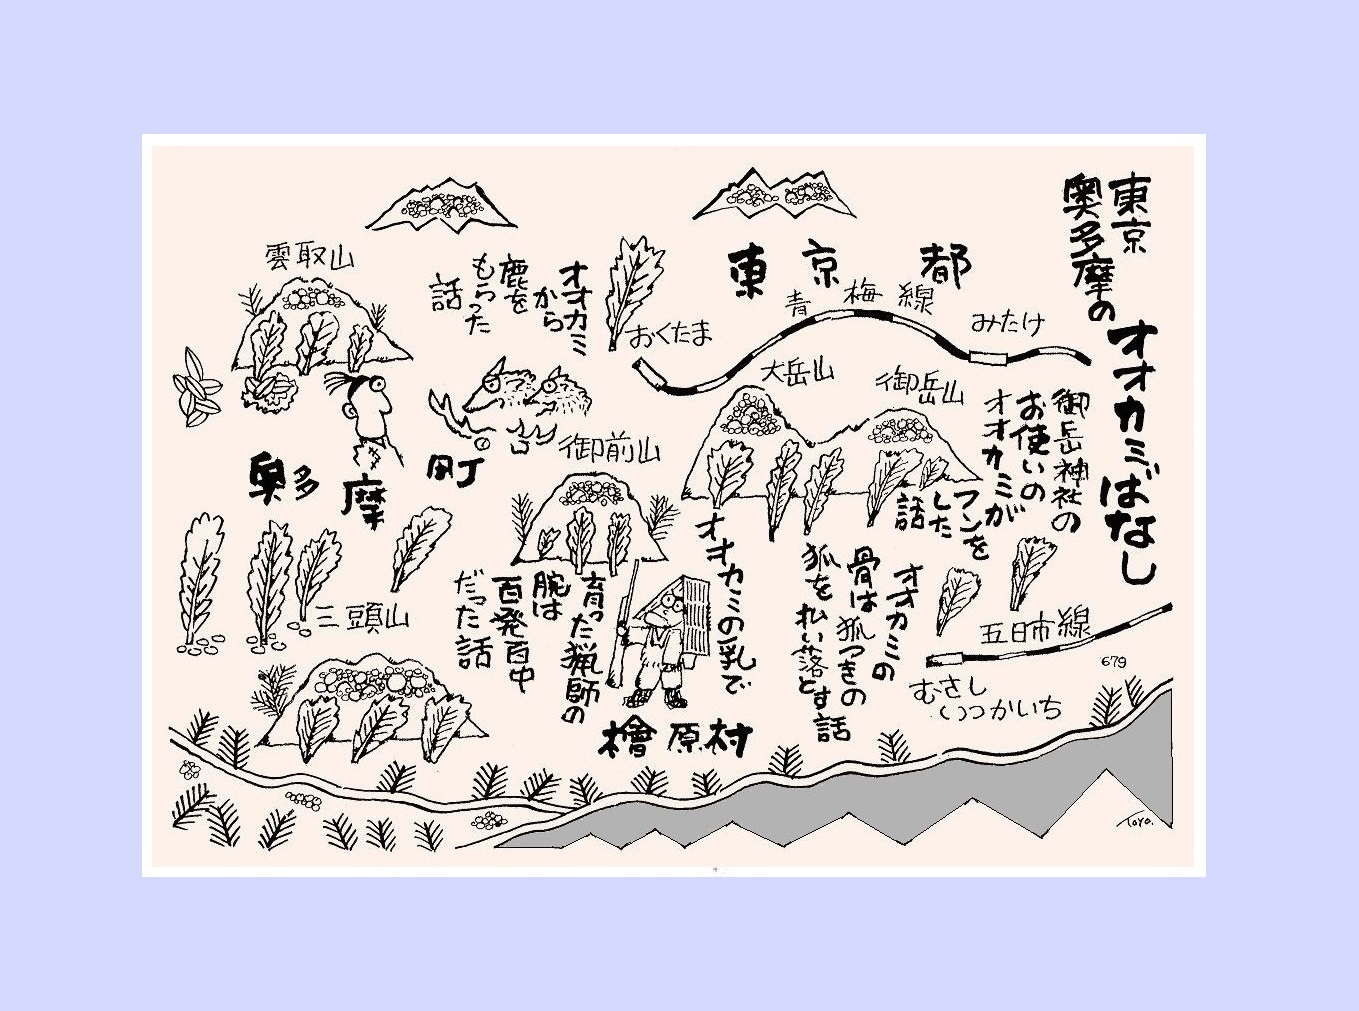 東京
奥多摩の
オオカミばなし
東京都
青梅線
おくたま
みたけ
大岳山
御岳山
御岳神社の
お使いの
オオカミが
フンを
した
話
オオカミの
骨は狐つきの
狐を払い落とす話
五日市線
679
むさし
いつかいち
雲取山
オオカミ
から
鹿を
もらった
話
奥多摩町
御前山
オオカミの乳で
育った猟師の
腕は
百発百中
だった話
三頭山
檜原村
Toyo.